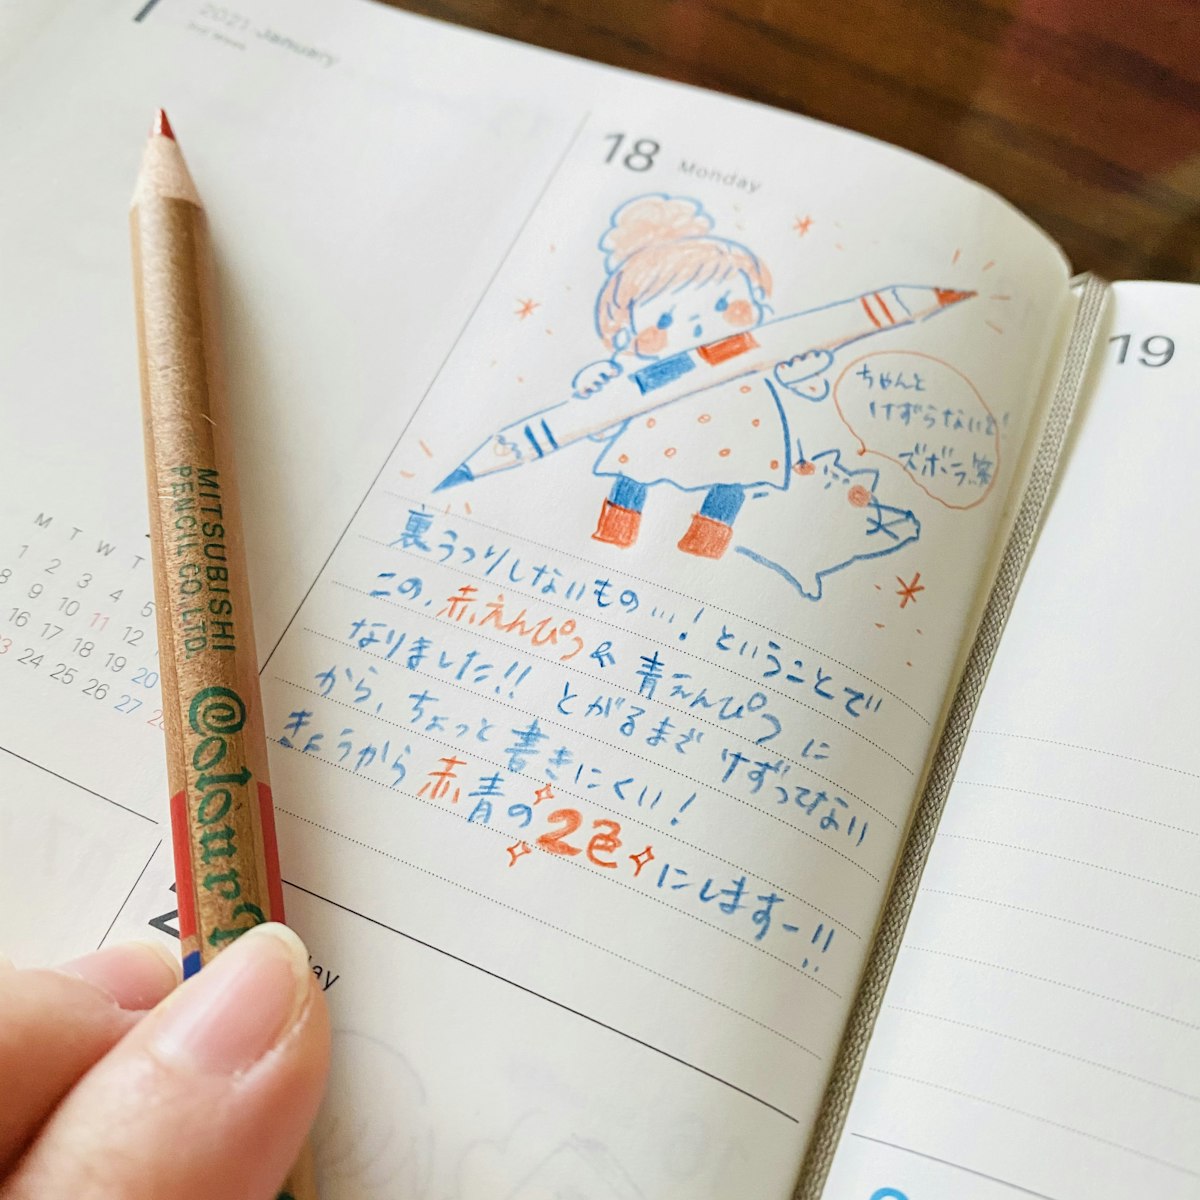 2021 January
18 Monday
ちゃんと
けずらないと!
ズボラ笑
裏うつりしないもの…!ということで
この、赤えんぴつ & 青えんぴつ に
なりました!! とがるまで けずってない
から、ちょっと書きにくい!
きょうから 赤、青の 2色 にします〜!!
19
MITSUBISHI
PENCIL CO. LTD.
M T W T
1 2 3 4 5
8 9 10 11 12
16 17 18 19 20
23 24 25 26 27 28